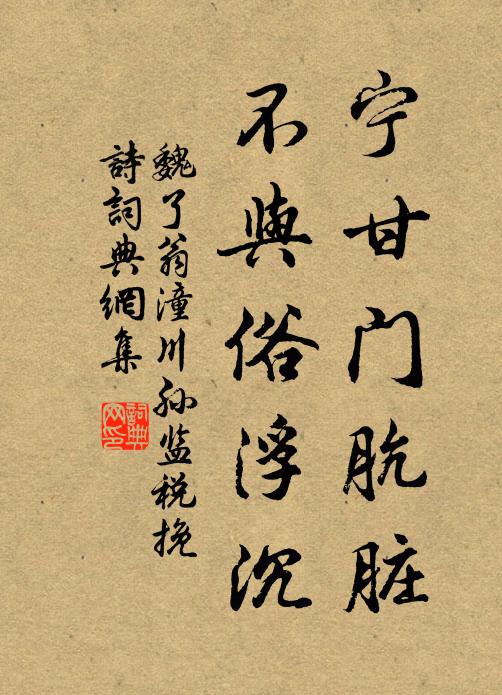 宁甘门肮脏
不與俗浮沉
魏了翁潼川孙监税挽
詩詞典網集
詞典網印